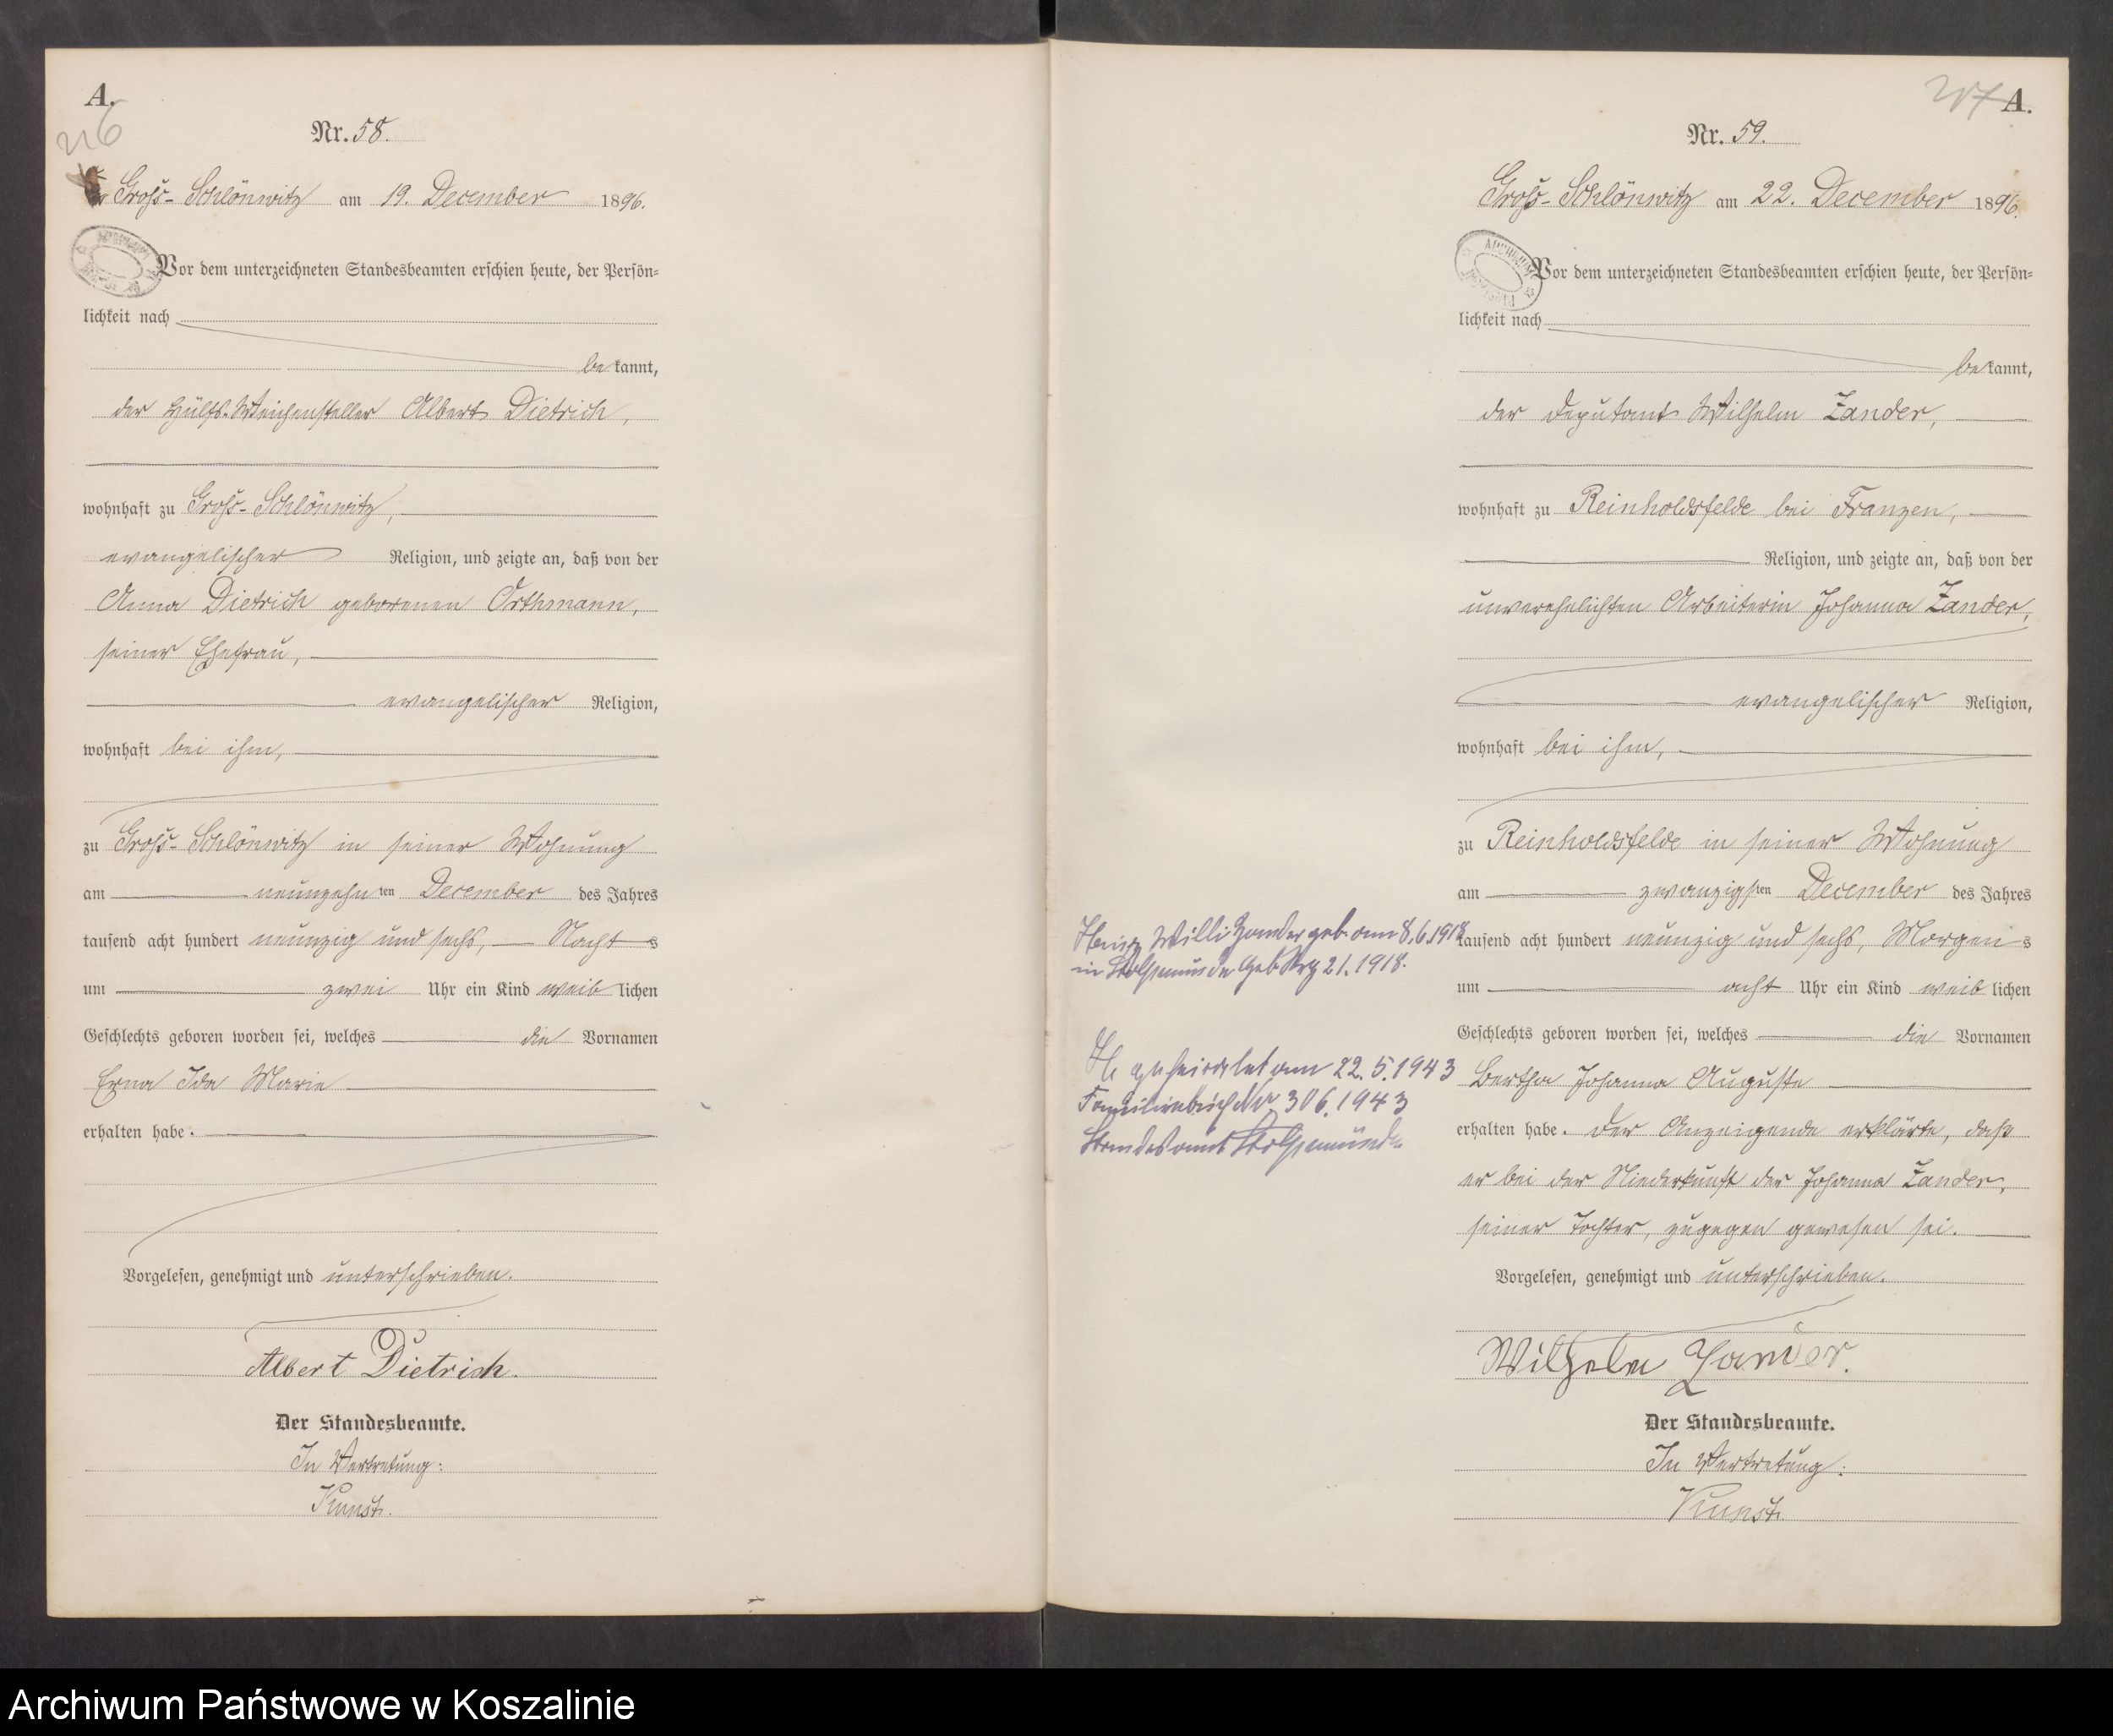 A.
216
Nr. 58.
Groß-Schlönwitz am 19. December 1896.
Vor dem unterzeichneten Standesbeamten erschien heute, der Persön=
lichkeit nach
bekannt,
der Hülfs-Weichensteller Albert Dietrich,
wohnhaft zu Groß-Schlönwitz,
evangelischer Religion, und zeigte an, daß von der
Anna Dietrich geborenen Orthmann,
seiner Ehefrau,
evangelischer Religion,
wohnhaft bei ihm,
zu Groß-Schlönwitz in seiner Wohnung
am neunzehnten December des Jahres
tausend acht hundert neunzig und sechs, Nachts
um zwei Uhr ein Kind weiblichen
Geschlechts geboren worden sei, welches die Vornamen
Erna Ida Marie
erhalten habe.
Vorgelesen, genehmigt und unterschrieben.
Albert Dietrich.
Der Standesbeamte.
In Vertretung:
Kunst.
217 A.
Nr. 59.
Groß-Schlönwitz am 22. December 1896.
Vor dem unterzeichneten Standesbeamten erschien heute, der Persön=
lichkeit nach
bekannt,
der Deputant Wilhelm Zander,
wohnhaft zu Reinholdsfelde bei Franzen,
Religion, und zeigte an, daß von der
unverehelichten Arbeiterin Johanna Zander,
evangelischer Religion,
wohnhaft bei ihm,
zu Reinholdsfelde in seiner Wohnung
am zwanzigsten December des Jahres
tausend acht hundert neunzig und sechs, Morgens
um acht Uhr ein Kind weiblichen
Geschlechts geboren worden sei, welches die Vornamen
Bertha Johanna Auguste
erhalten habe. Der Anzeigende erklärte, daß
er bei der Niederkunft der Johanna Zander,
seiner Tochter, zugegen gewesen sei.
Vorgelesen, genehmigt und unterschrieben.
Wilhelm Zander.
Der Standesbeamte.
In Vertretung:
Kunst.
Heinz Willi Zander geb. am 8.6.1918
in Stolpmünde Geb Reg 21.1918.
geheiratet am 22.5.1943
Familienbuch Nr. 306.1943
Standesamt Stolpmünde
Archiwum Państwowe w Koszalinie